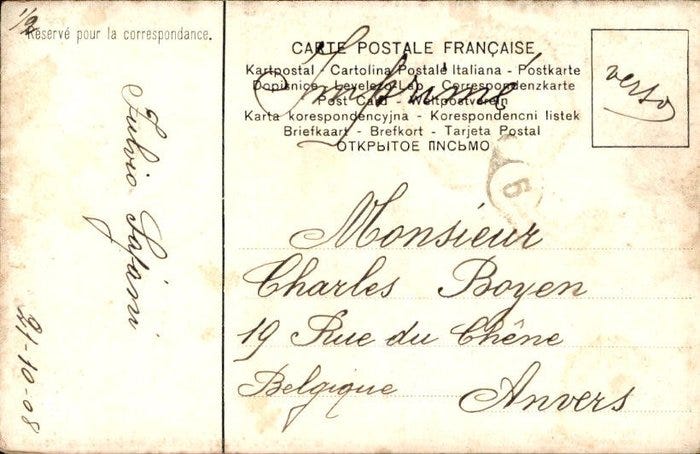 1/92
Réservé pour la correspondance.
Fulvio
21-10-08
CARTE POSTALE FRANÇAISE
Kartpostal - Cartolina Postale Italiana - Postkarte
Dopisnice - Levelezo-Lap - Correspondenzkarte
Post Card - Weltpostverein
Karta korespondencyjna - Korespondencni listek
Briefkaart - Brefkort - Tarjeta Postal
ОТКРЫТОЕ ПИСЬМО
Imprimé
verso
6
Monsieur
Charles Boyen
19 Rue du Chêne
Belgique Anvers